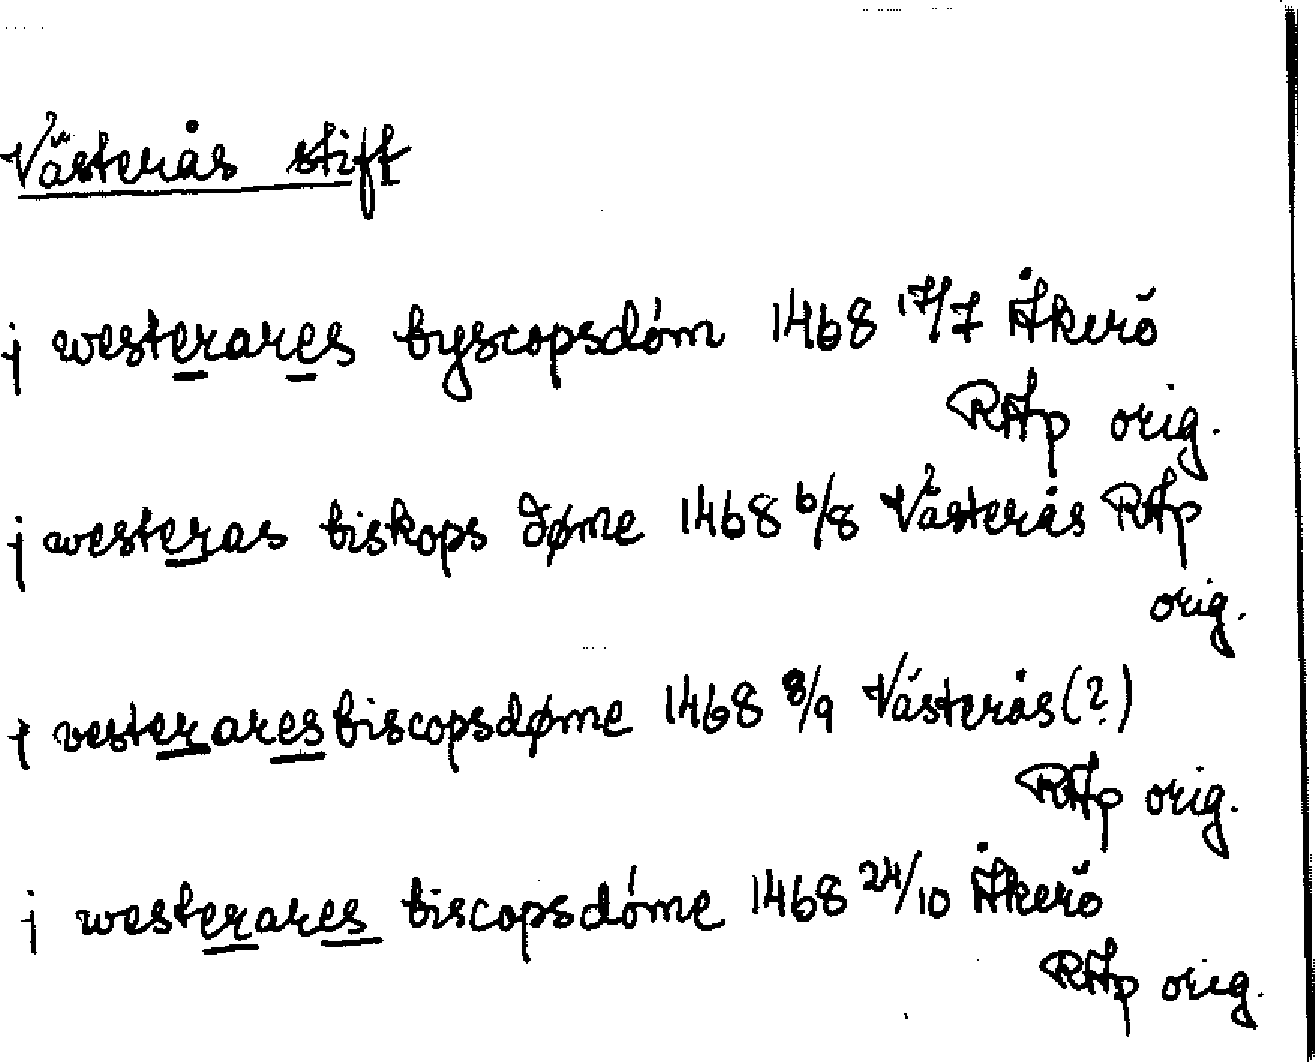 Västerås stift
j westerares byscopsdóm 1468 17/7 Åkerö
RAp orig.
j westeras biskops døme 1468 6/8 Västerås RAp
orig.
j vesterares biscopsdøme 1468 8/9 Västerås (?)
RAp orig.
j westerares biscopsdóme 1468 24/10 Åkerö
RAp orig.